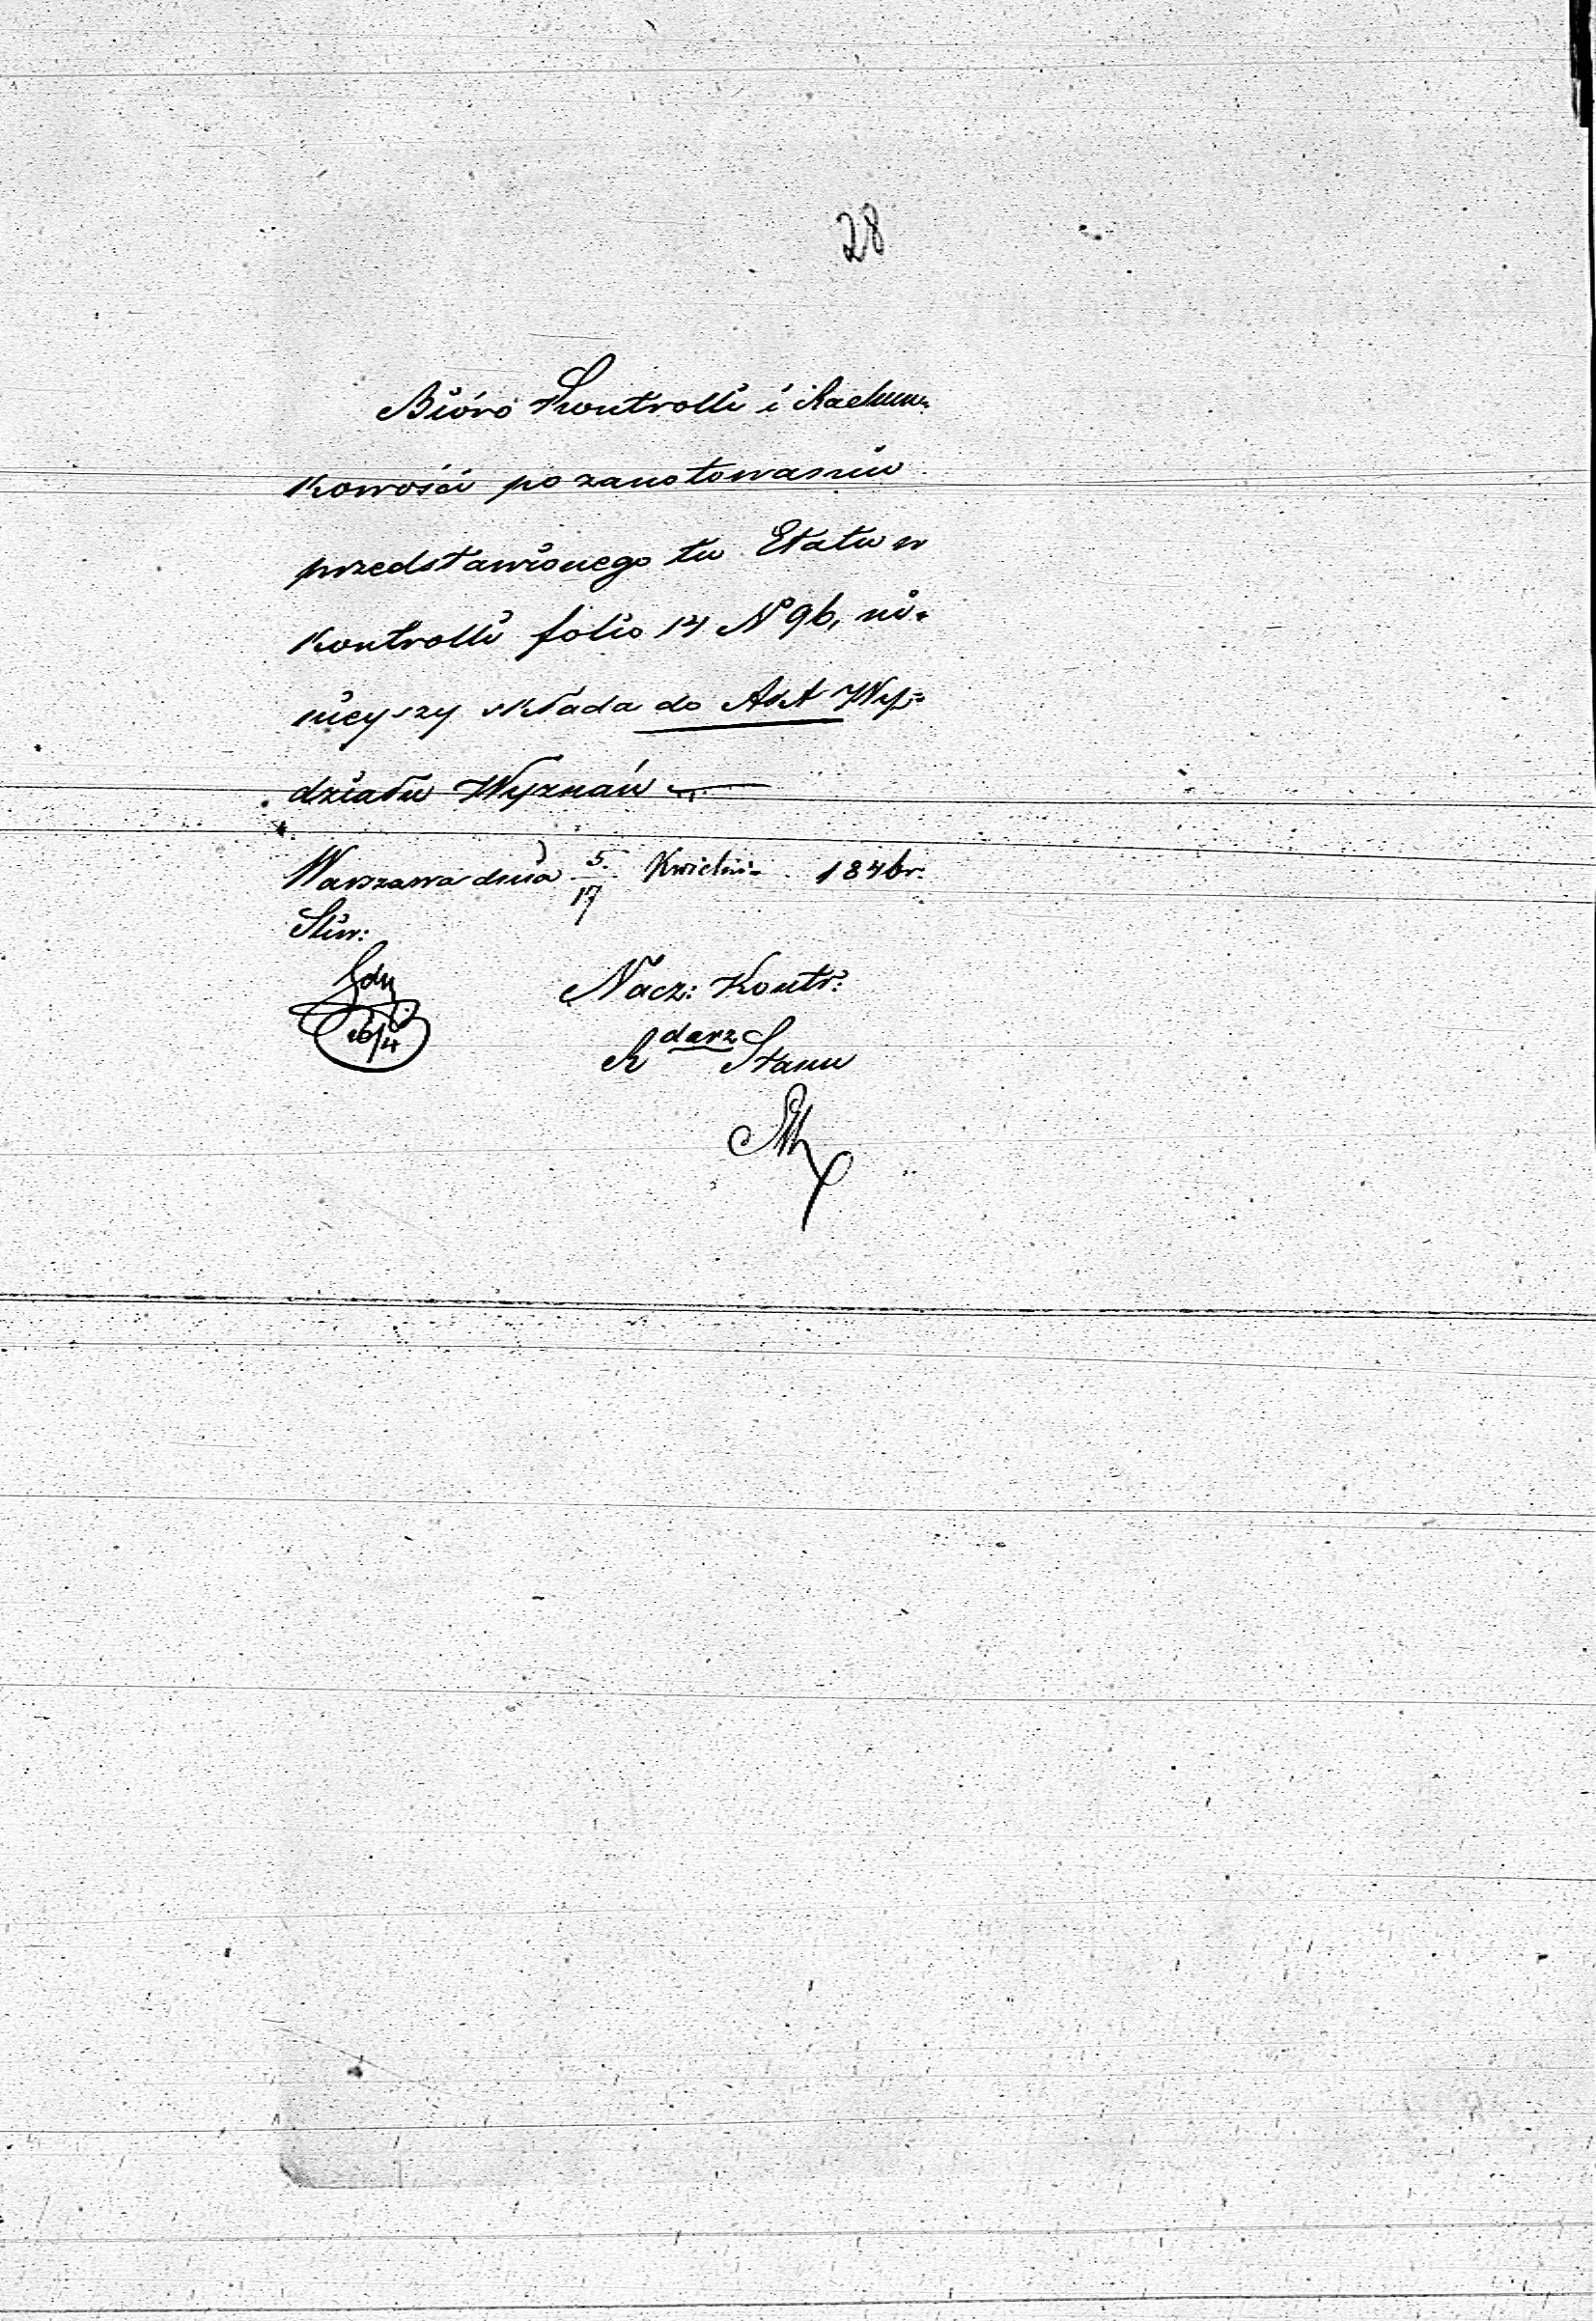 28
Bióro Kontrolli i Rachun-
kowości po zanotowaniu
przedstawionego tu Etatu w
kontrolli folio 14 N° 96, ni-
nieyszy składa do Akt Wy-
działu Wyznań
Warszawa dnia 5/17 Kwietnia 1846 r.
Nacz: Kontr:
R darz Stanu